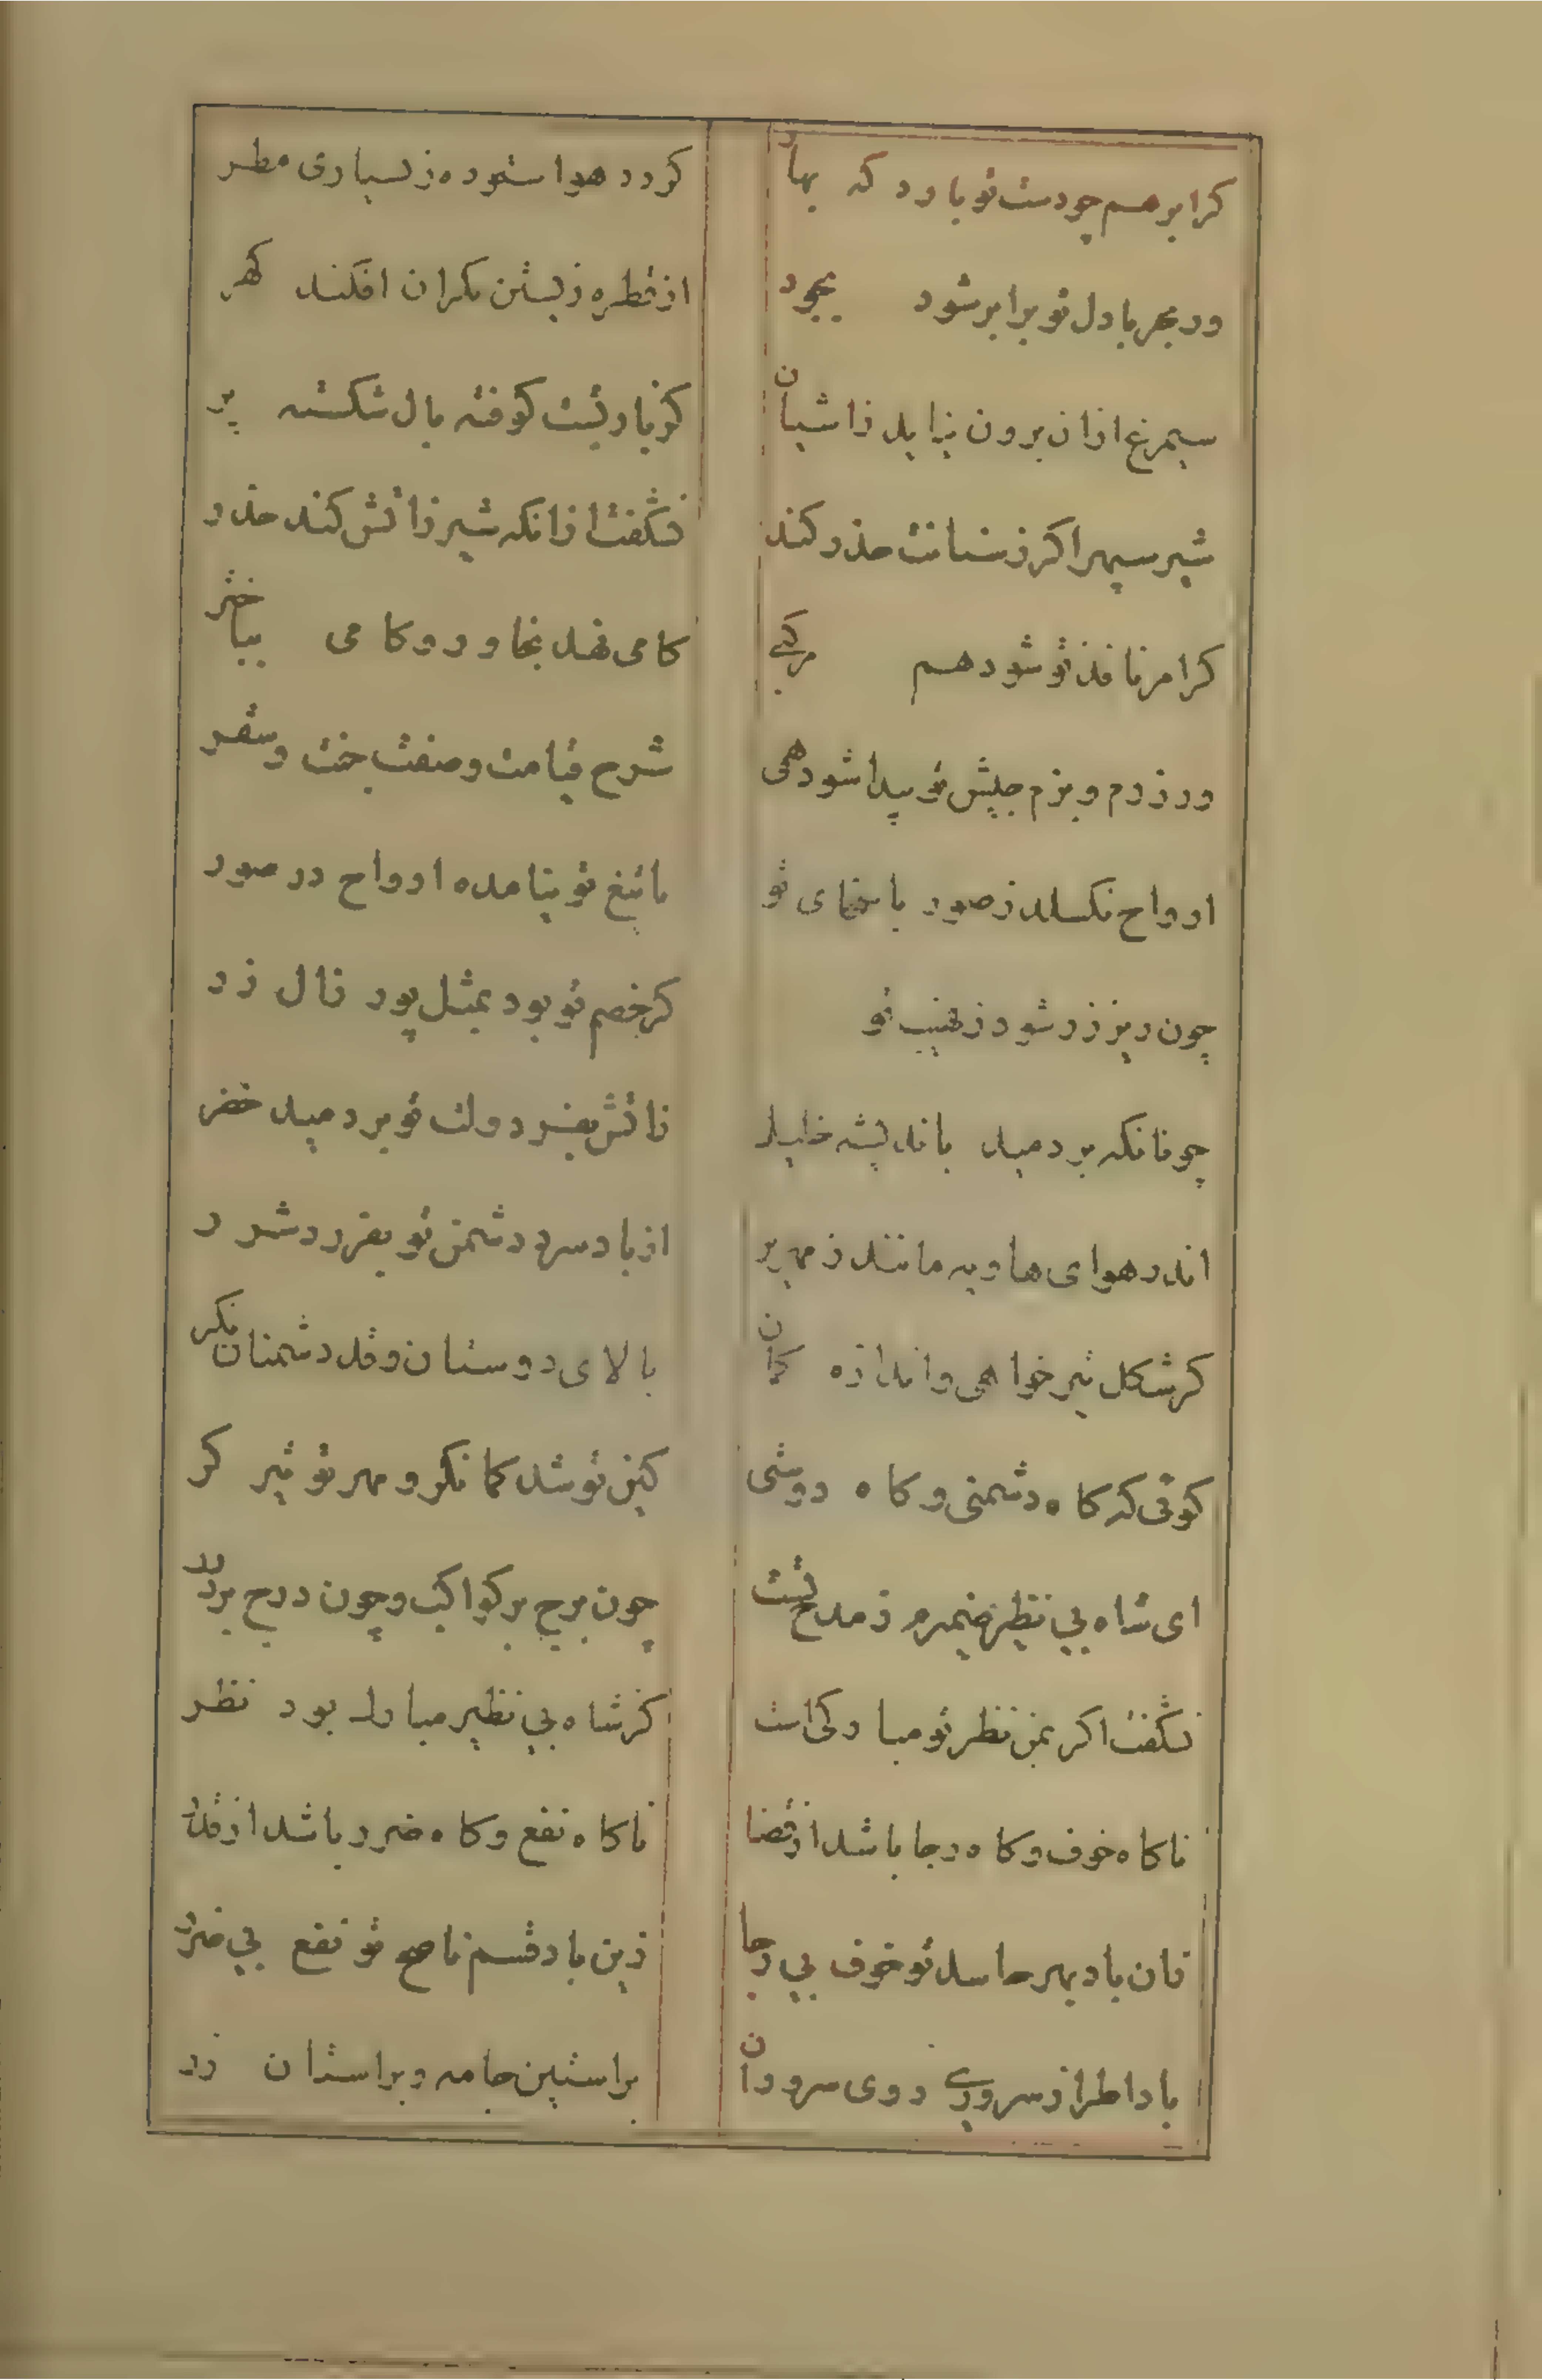 کرابر هم چو دست تو بارد که بهار
کردد هوا ستوده ز بسیاری مطر
ور بحر با دل تو برابر شود بجود
از قطره زیستن بکران افکند کهر
سیمرغ ازان برون نیاید ز اشیان
کز بار تست کوفته بال شکسته پر
شیر سپهر اکر ز سنانت حذر کند
نشکفت ازانکه شیر ز اتش کند حذر
کر امر نافذ تو شود هم مرکبی
کامی نهد بخاور و کامی بباختر
ور رزم و بزم جیش تو پیدا شود همی
شرح قیامت و صفت جنت و سقر
ارواح نکسلد ز صور با سخای تو
با تیغ تو نیامده ارواح در صور
چون ریز زر شود ز نهیب تو
کر خصم تو بود بمثل پور زال زر
چونانکه بردمید باندیشه خلیل
ز اتش بفر دولت تو بردمید خضر
اندر هوای هاویه مانند زمهریر
از باد سرد دشمن تو بفسرد شرر
کر شکل تیر خواهی و اندازه کمان
بالای دوستان و قد دشمنان نکر
کوئی که کاه دشمنی و کاه دوستی
کین تو شد کمانکر و مهر تو تیر کر
ای شاه بی نظیر ضمیرم ز مدح تست
چون برج پر کواکب و چون درج پر درر
نشکفت اکر بمن نظر تو مبارک است
کز شاه بی نظیر مبارک بود نظر
تا کاه خوف و کاه رجا باشد از قضا
تا کاه نفع و کاه ضرر باشد از قدر
زان باد بهر حاسد تو خوف بی رجا
زین باد قسم ناصح تو نفع بی ضرر
بادا طراز سروری روی سروران
بر استین جامه و بر استان زر